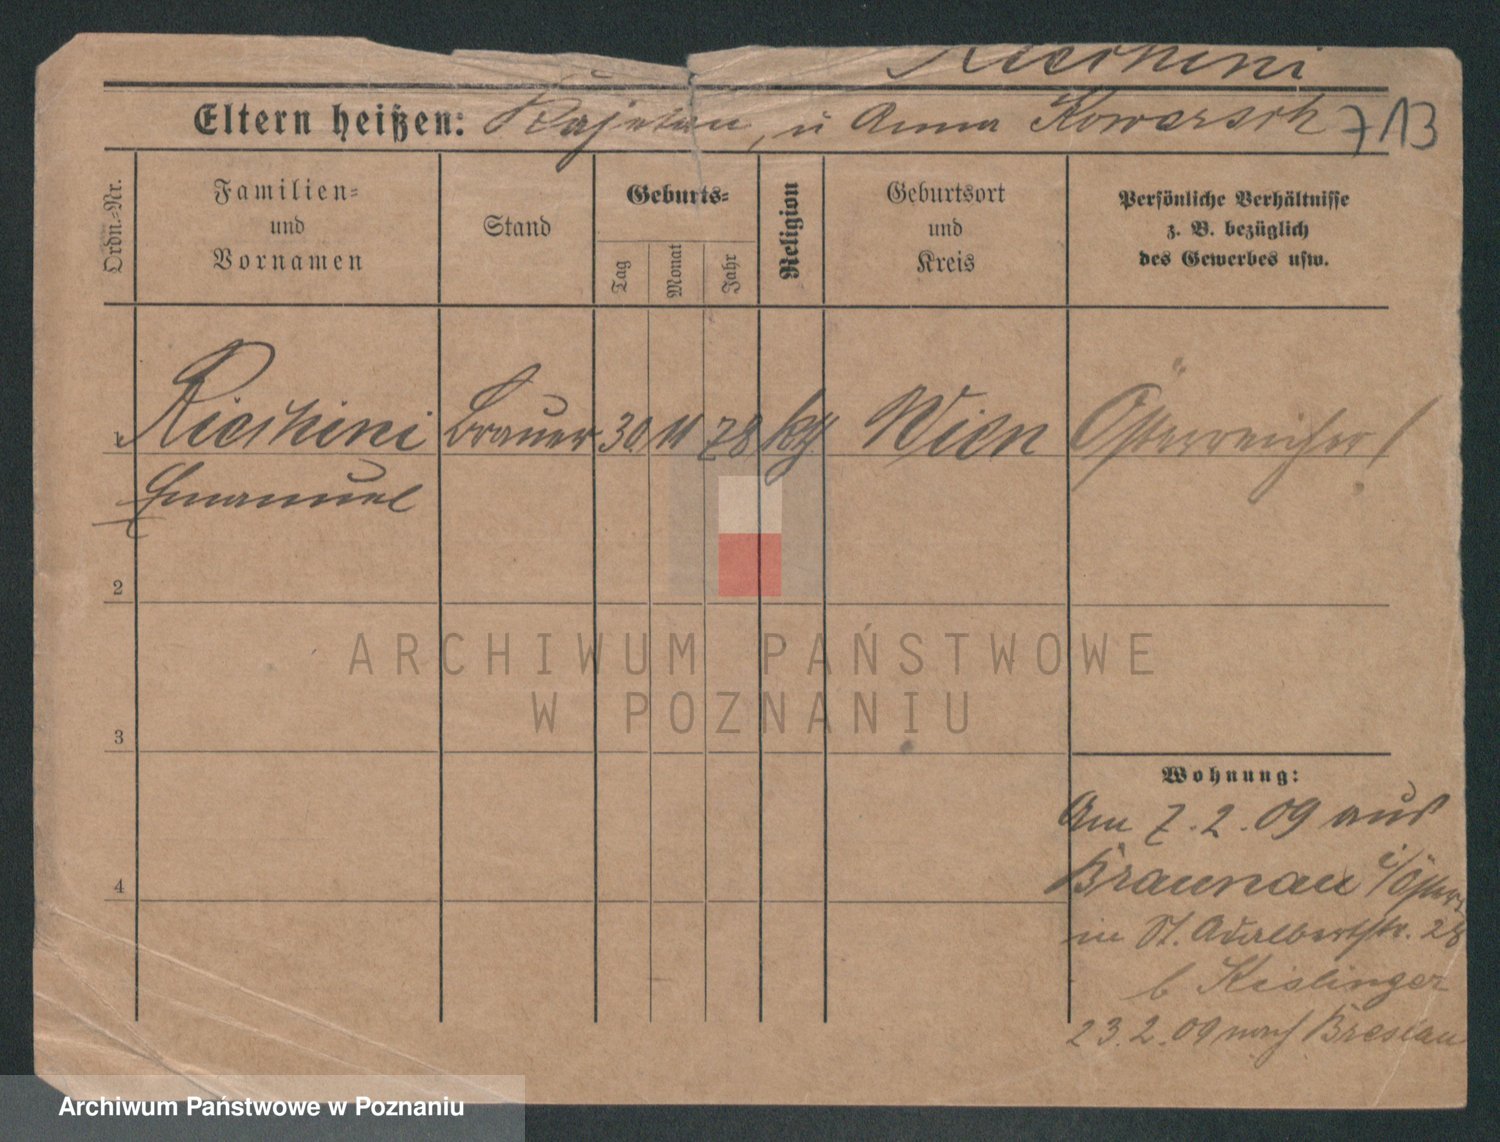 Ricchini
Eltern heißen: Kajetan, u Anna Kowarsch 713
Ordn.-Nr.
Familien-
und
Vornamen
Stand
Geburts-
Tag
Monat
Jahr
Religion
Geburtsort
und
Kreis
Persönliche Verhältnisse
z. B. bezüglich
des Gewerbes usw.
1 Ricchini Brauer 30 11 78 kth Wien Österreicher
Emanuel
2
3
4
Wohnung:
Am 7.2.09 aus
Braunau i/Österr
in St. Adalbertstr. 28
b Kislinger
23.2.09 nach Breslau
ARCHIWUM PAŃSTWOWE
W POZNANIU
Archiwum Państwowe w Poznaniu